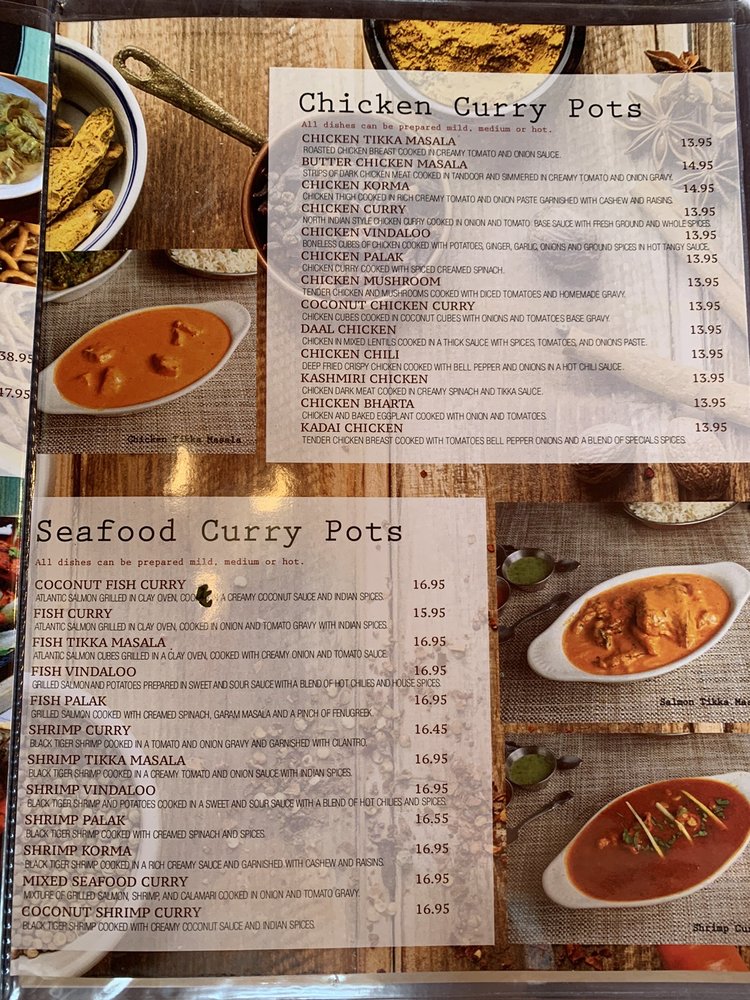 38.95
47.95
Chicken Curry Pots
All dishes can be prepared mild, medium or hot.
CHICKEN TIKKA MASALA 13.95
ROASTED CHICKEN BREAST COOKED IN CREAMY TOMATO AND ONION SAUCE.
BUTTER CHICKEN MASALA 14.95
STRIPS OF DARK CHICKEN MEAT COOKED IN TANDOOR AND SIMMERED IN CREAMY TOMATO AND ONION GRAVY.
CHICKEN KORMA 14.95
CHICKEN THIGH COOKED IN RICH CREAMY TOMATO AND ONION PASTE GARNISHED WITH CASHEW AND RAISINS.
CHICKEN CURRY 13.95
NORTH INDIAN STYLE CHICKEN CURRY COOKED IN ONION AND TOMATO BASE SAUCE WITH FRESH GROUND AND WHOLE SPICES.
CHICKEN VINDALOO 13.95
BONELESS CUBES OF CHICKEN COOKED WITH POTATOES, GINGER, GARLIC, ONIONS AND GROUND SPICES IN HOT TANGY SAUCE.
CHICKEN PALAK 13.95
CHICKEN CURRY COOKED WITH SPICED CREAMED SPINACH.
CHICKEN MUSHROOM 13.95
TENDER CHICKEN AND MUSHROOMS COOKED WITH DICED TOMATOES AND HOMEMADE GRAVY.
COCONUT CHICKEN CURRY 13.95
CHICKEN CUBES COOKED IN COCONUT CUBES WITH ONIONS AND TOMATOES BASE GRAVY.
DAAL CHICKEN 13.95
CHICKEN IN MIXED LENTILS COOKED IN A THICK SAUCE WITH SPICES, TOMATOES, AND ONIONS PASTE.
CHICKEN CHILI 13.95
DEEP FRIED CRISPY CHICKEN COOKED WITH BELL PEPPER AND ONIONS IN A HOT CHILI SAUCE.
KASHMIRI CHICKEN 13.95
CHICKEN DARK MEAT COOKED IN CREAMY SPINACH AND TIKKA SAUCE.
CHICKEN BHARTA 13.95
CHICKEN AND BAKED EGGPLANT COOKED WITH ONION AND TOMATOES.
KADAI CHICKEN 13.95
TENDER CHICKEN BREAST COOKED WITH TOMATOES BELL PEPPER ONIONS AND A BLEND OF SPECIALS SPICES.
Chicken Tikka Masala
Seafood Curry Pots
All dishes can be prepared mild, medium or hot.
COCONUT FISH CURRY 16.95
ATLANTIC SALMON GRILLED IN CLAY OVEN, A CREAMY COCONUT SAUCE AND INDIAN SPICES.
FISH CURRY 15.95
ATLANTIC SALMON GRILLED IN CLAY OVEN, COOKED IN ONION AND TOMATO GRAVY WITH INDIAN SPICES.
FISH TIKKA MASALA 16.95
ATLANTIC SALMON CUBES GRILLED IN A CLAY OVEN, COOKED WITH CREAMY ONION AND TOMATO SAUCE
FISH VINDALOO 16.95
GRILLED SALMON AND POTATOES PREPARED IN SWEET AND SOUR SAUCE WITH A BLEND OF HOT CHILIES AND HOUSE SPICES.
FISH PALAK 16.95
GRILLED SALMON COOKED WITH CREAMED SPINACH, GARAM MASALA AND A PINCH OF FENUGREEK.
SHRIMP CURRY 16.45
BLACK TIGER SHRIMP COOKED IN A TOMATO AND ONION GRAVY AND GARNISHED WITH CILANTRO.
SHRIMP TIKKA MASALA 16.95
BLACK TIGER SHRIMP COOKED IN A CREAMY TOMATO AND ONION SAUCE WITH INDIAN SPICES.
SHRIMP VINDALOO 16.95
BLACK TIGER SHRIMP AND POTATOES COOKED IN A SWEET AND SOUR SAUCE WITH A BLEND OF HOT CHILIES AND SPICES.
SHRIMP PALAK 16.55
BLACK TIGER SHRIMP COOKED WITH CREAMED SPINACH AND SPICES.
SHRIMP KORMA 16.95
BLACK TIGER SHRIMP COOKED IN A RICH CREAMY SAUCE AND GARNISHED WITH CASHEW AND RAISINS.
MIXED SEAFOOD CURRY 16.95
MIXTURE OF GRILLED SALMON, SHRIMP, AND CALAMARI COOKED IN ONION AND TOMATO GRAVY.
COCONUT SHRIMP CURRY 16.95
BLACK TIGER SHRIMP COOKED WITH CREAMY COCONUT SAUCE AND INDIAN SPICES.
Salmon Tikka Ma
Shrimp Cu